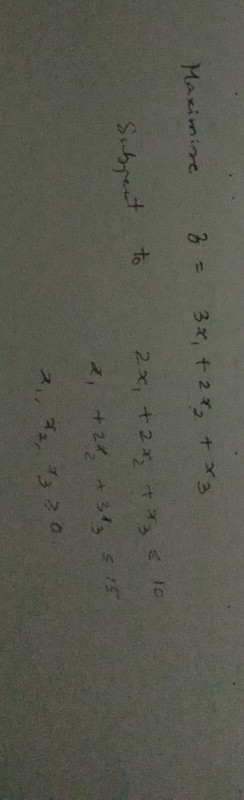 Maximise z = 3x₁ + 2x₂ + x₃
Subject to 2x₁ + 2x₂ + x₃ ≤ 10
x₁ + 2x₂ + 3x₃ ≤ 15
x₁, x₂, x₃ ≥ 0